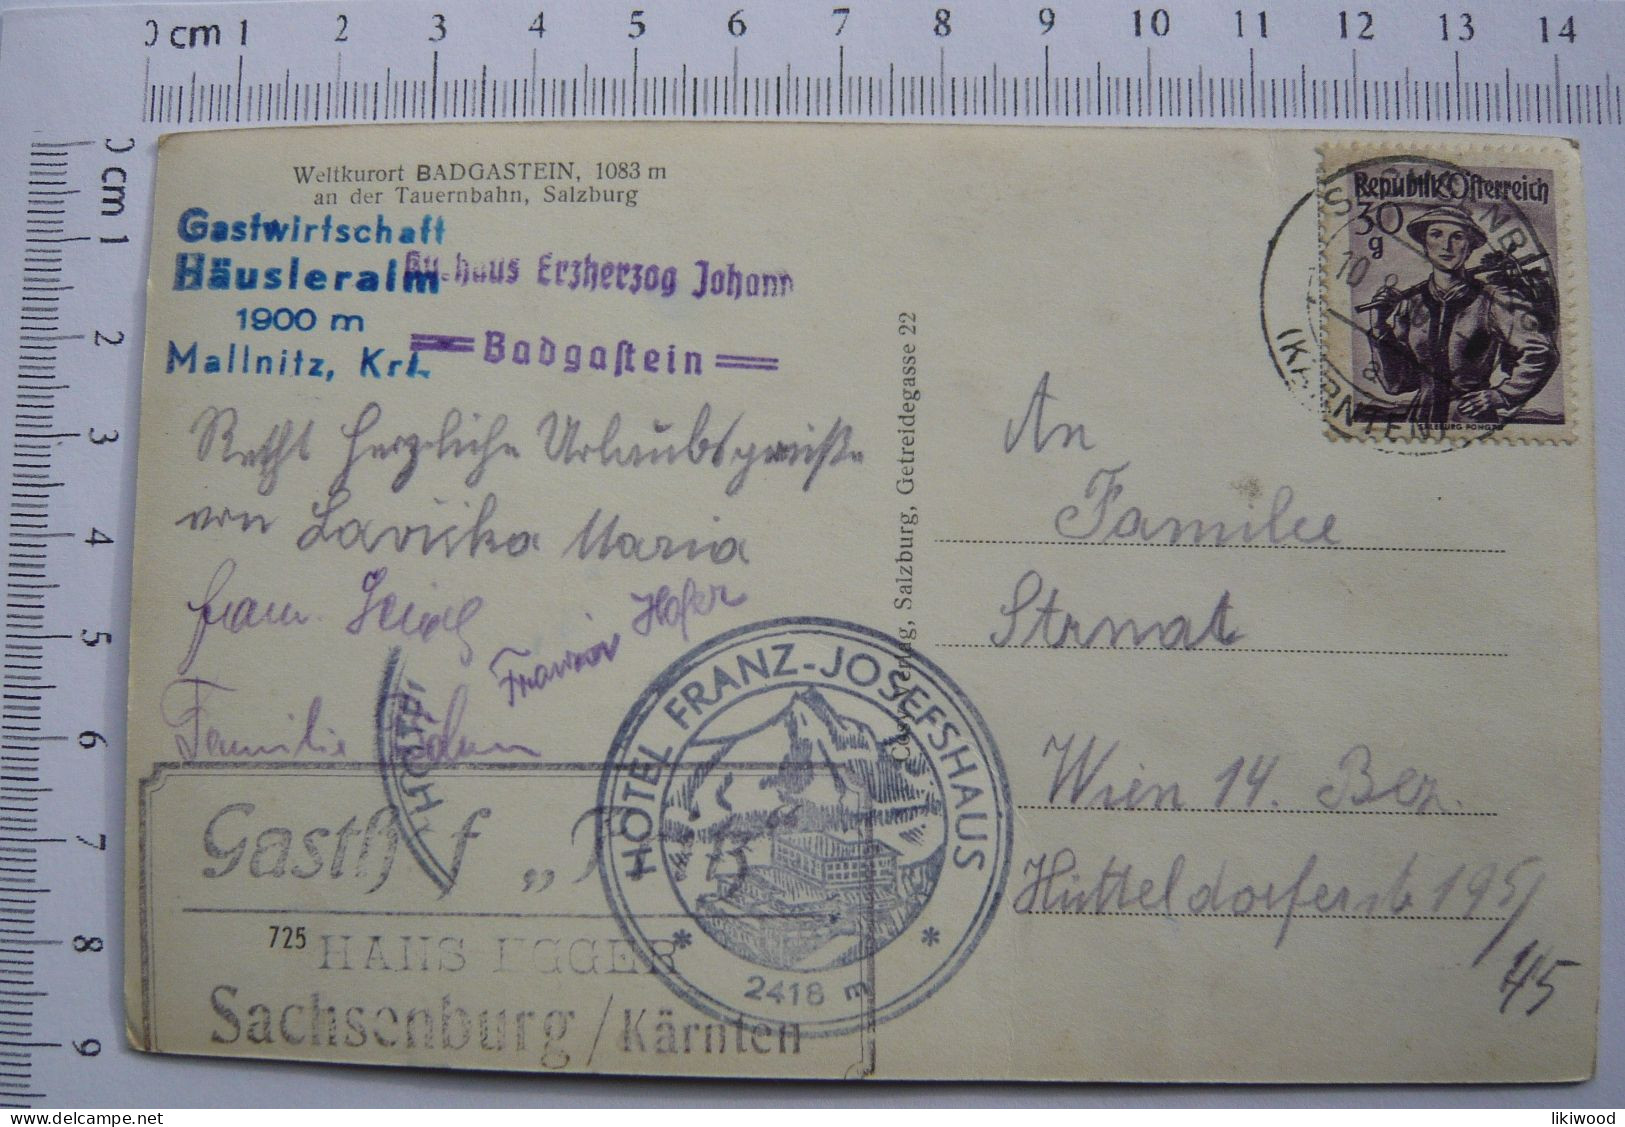 0 cm 1 2 3 4 5 6 7 8 9 10 11 12 13 14
0 cm 1 2 3 4 5 6 7 8 9
Weltkurort BADGASTEIN, 1083 m
an der Tauernbahn, Salzburg
Gastwirtschaft
Häusleralm
1900 m
Mallnitz, Krt.
haus Erzherzog Johann
Badgastein
herzliche Urlaubsgrüße
von Maria
Hofer
Familie
HOTEL FRANZ-JOSEFSHAUS
2418 m
725
HANS EGGER
Sachsenburg / Kärnten
Verlag, Salzburg, Getreidegasse 22
Republik Österreich
30
g
SALZBURG PONGAU
(KÄRNTEN)
An
Familie
Strnat
Wien 14. Bez.
Hütteldorferstr 195/
45
likiwood